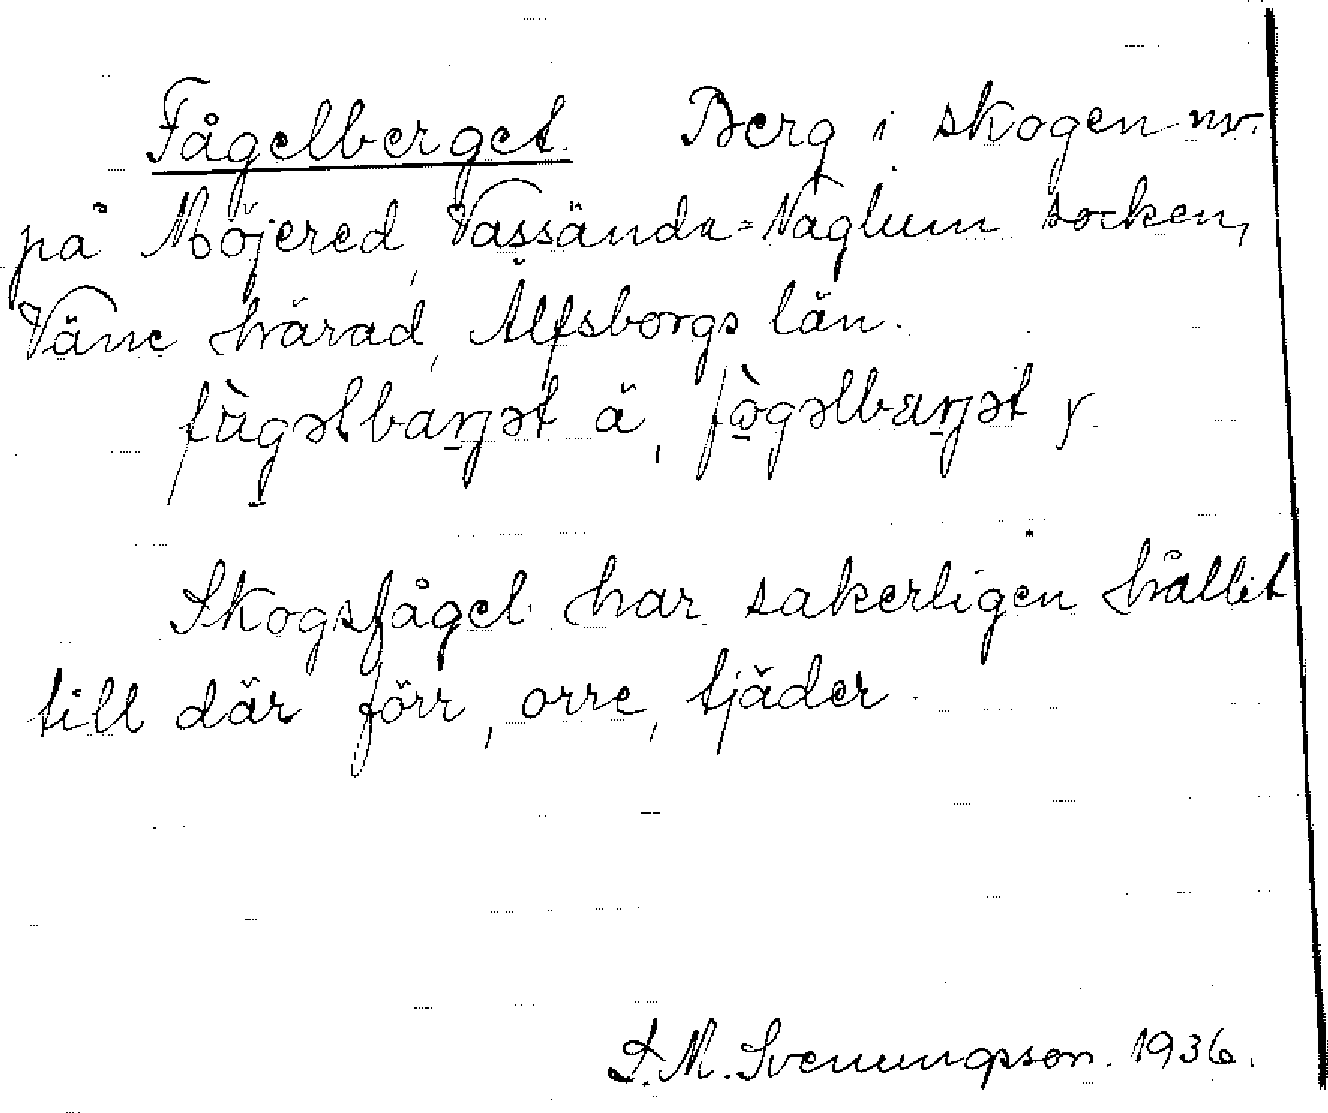 Fågelberget. Berg i skogen nv.
på Möjered, Vassända=Naglum socken,
Väne härad, Älfsborgs län.
fùgəlbaŋət ä, fògəlbaŋət y
Skogsfågel har säkerligen hållit
till där förr, orre, tjäder.
S.M. Svenungsson. 1936.